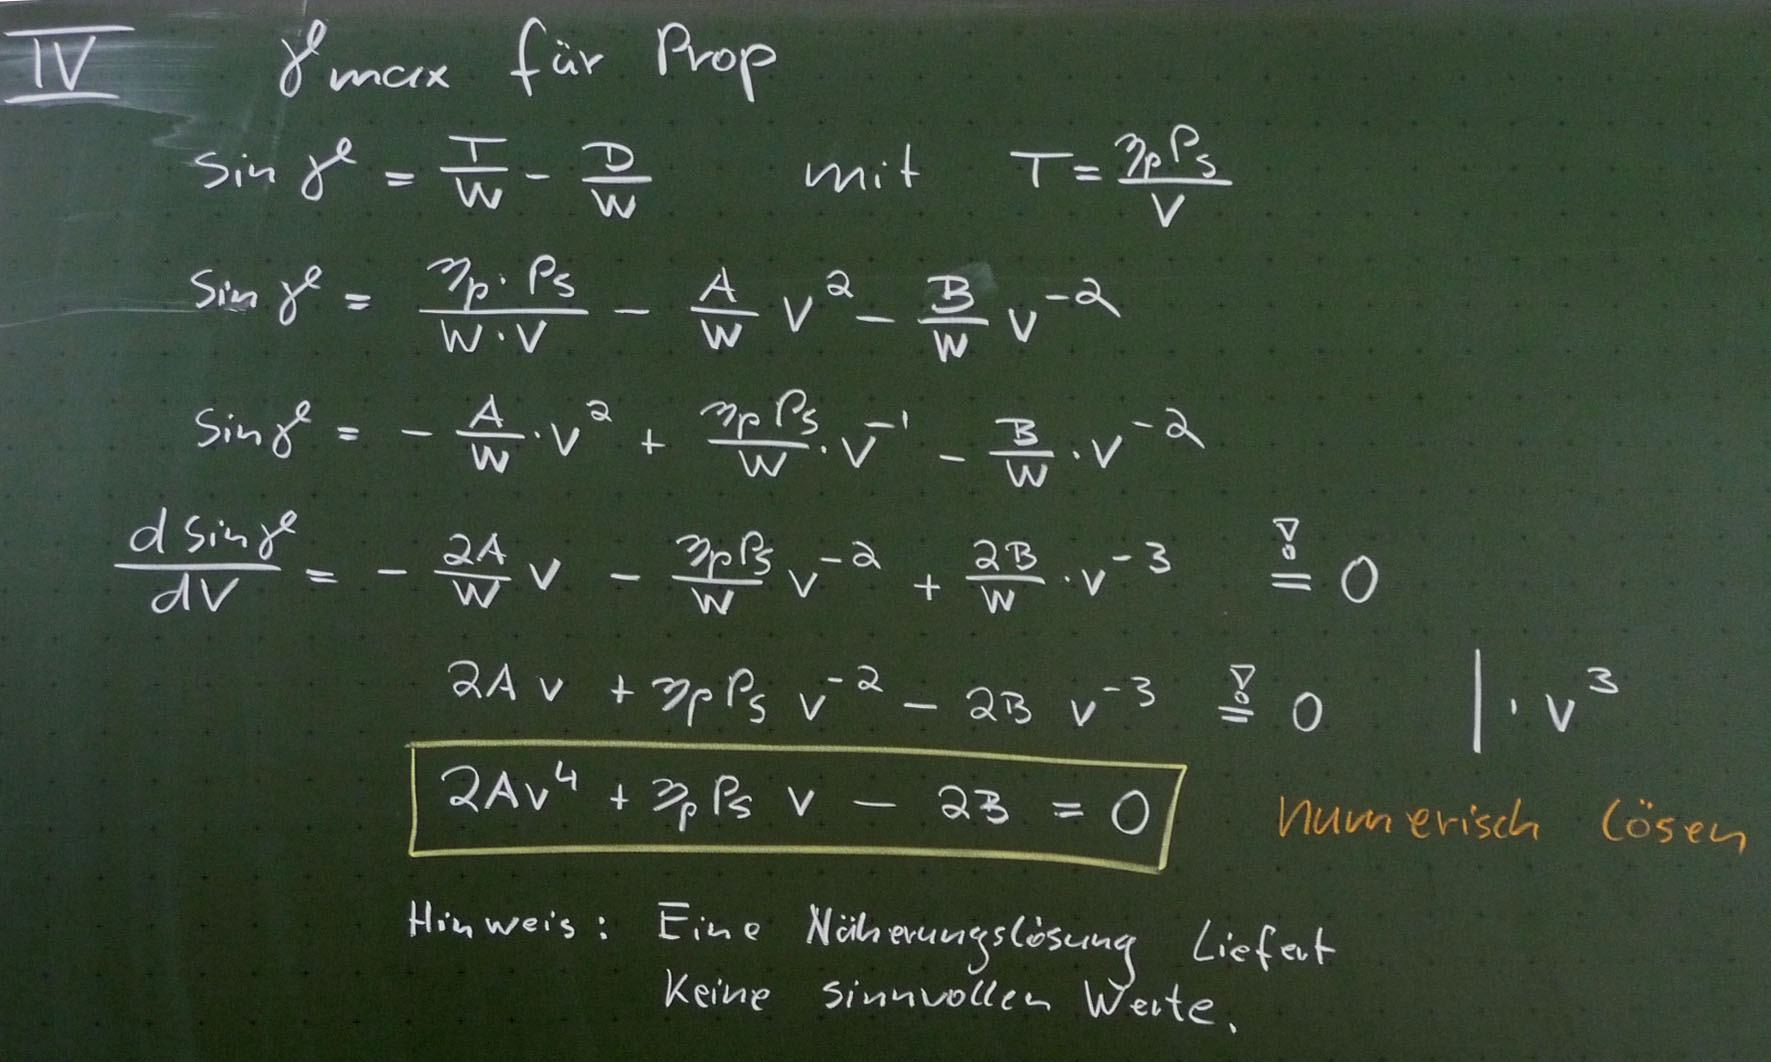 IV γmax für Prop
sin γ = T/W - D/W mit T = ηp Ps / V
sin γ = ηp · Ps / W · V - A/W V² - B/W V⁻²
sin γ = - A/W · V² + ηp Ps / W · V⁻¹ - B/W · V⁻²
d sin γ / dV = - 2A/W V - ηp Ps / W V⁻² + 2B/W · V⁻³ =! 0
2A V + ηp Ps V⁻² - 2B V⁻³ =! 0 | · V³
2AV⁴ + ηp Ps V - 2B = 0 numerisch lösen
Hinweis: Eine Näherungslösung Liefert
Keine sinnvollen Werte.